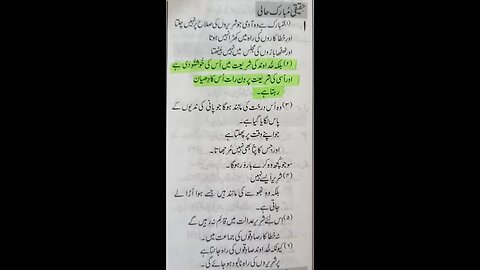 حقیقی مبارک حالی
۱ (۱) مبارک ہے وہ آدمی جو شریروں کی صلاح پر نہیں چلتا
اور خطاکاروں کی راہ میں کھڑا نہیں ہوتا
اور ٹھٹھا بازوں کی مجلس میں نہیں بیٹھتا
(۲) بلکہ خداوند کی شریعت میں اُس کی خوشنودی ہے
اور اُسی کی شریعت پر دن رات اُس کا دھیان
رہتا ہے۔
(۳) وہ اُس درخت کی مانند ہوگا جو پانی کی ندیوں کے
پاس لگایا گیا ہے۔
جو اپنے وقت پر پھلتا ہے
اور جس کا پتا بھی نہیں مُرجھاتا۔
سو جو کچھ وہ کرے بارور ہوگا۔
(۴) شریر ایسے نہیں
بلکہ وہ بھوسے کی مانند ہیں جسے ہوا اُڑا لے
جاتی ہے۔
(۵) اس لئے شریر عدالت میں قائم نہ رہیں گے
نہ خطاکار صادقوں کی جماعت میں۔
(۶) کیونکہ خداوند صادقوں کی راہ جانتا ہے
پر شریروں کی راہ نابود ہو جائے گی۔